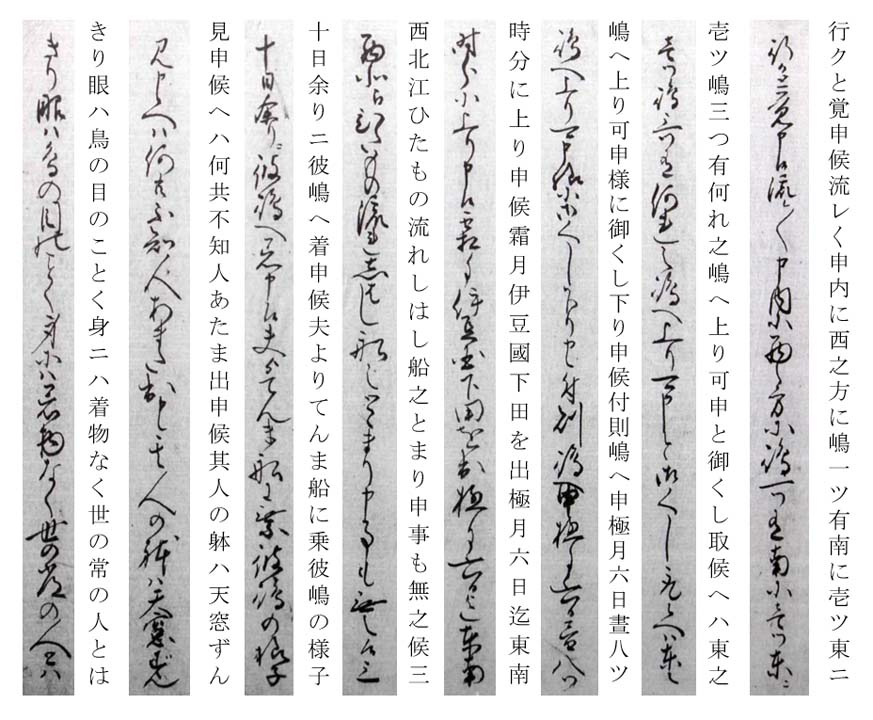 行クと覚申候流レく申内に西之方に嶋一ツ有南に壱ツ東ニ
壱ツ嶋三つ有何れ之嶋へ上り可申と御くし取候へハ東之
嶋へ上り可申様に御くし下り申候付則嶋へ申極月六日晝八ツ
時分に上り申候霜月伊豆國下田を出極月六日迄東南
西北江ひたもの流れしはし船之とまり申事も無之候三
十日余りニ彼嶋へ着申候夫よりてんま船に乗彼嶋の様子
見申候へハ何共不知人あたま出申候其人の躰ハ天窓ずん
きり眼ハ鳥の目のことく身ニハ着物なく世の常の人とは